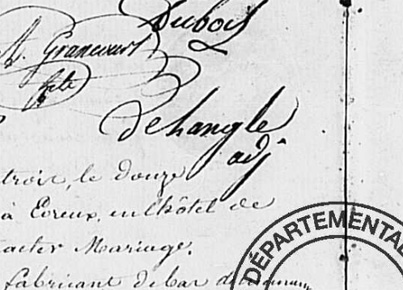 Dubois
N. Grancourt
fils
Dehangle
adj
trois, le douze
à Evreux, en l'hôtel de
tracter Mariage.
fabricant de bas
DÉPARTEMENTAL